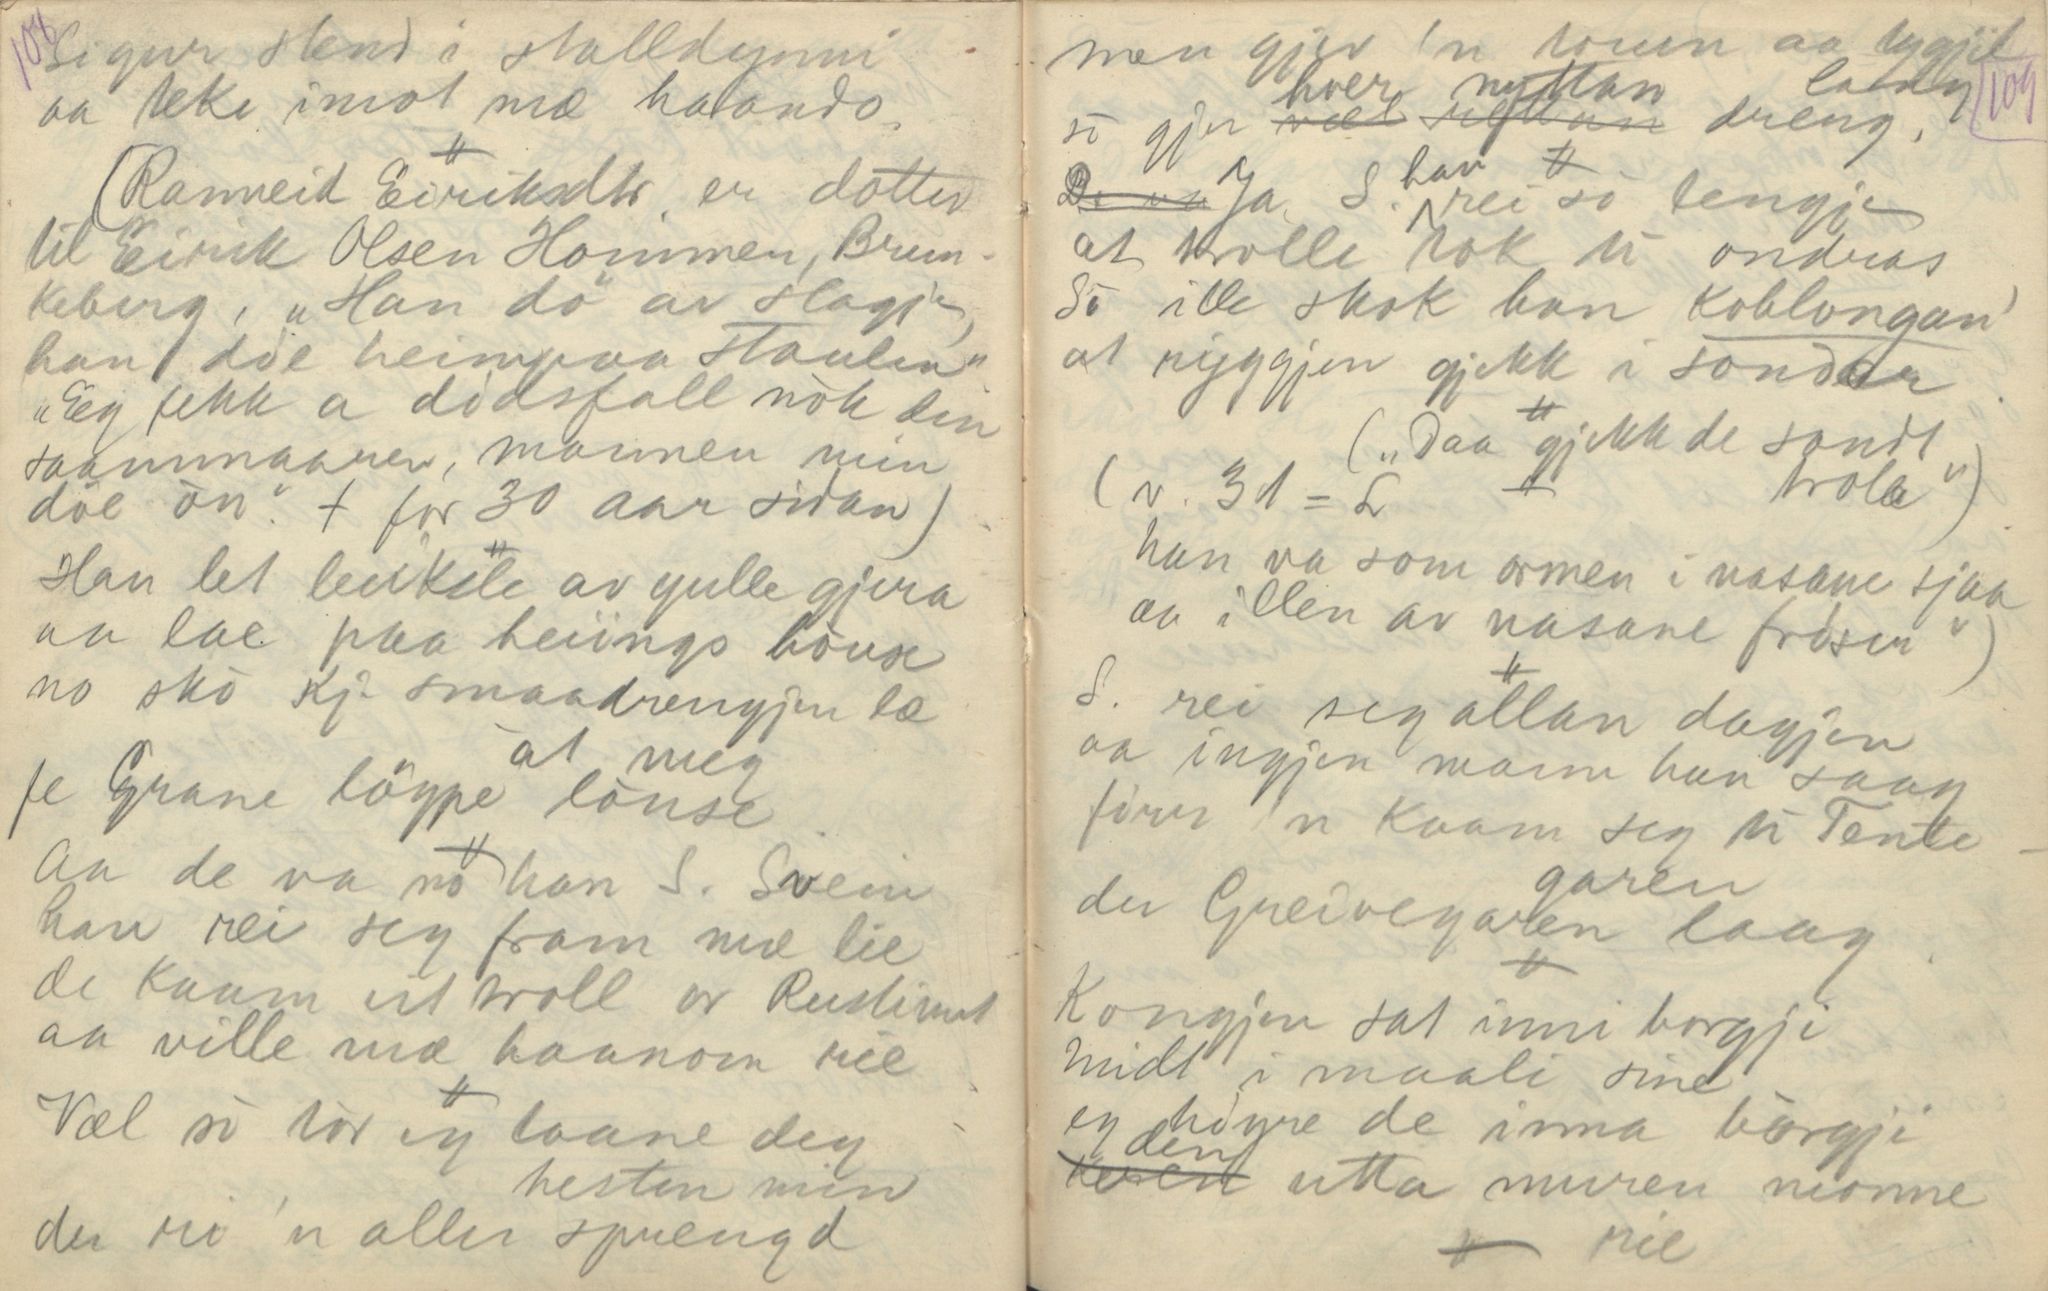 108
Sigur stend i stalldynni
aa teke imot mæ haando.
(Ranneid Eiriksdtr. er dotter
til Eirik Olsen Hommen, Brun-
keberg, „Han dö" av slagje,
han döe heimpaa staulen"
„Eg fekk a dödsfall nòk din
saammaaren, mannen min
döe òn". † for 30 aar sidan)
Han let leikile av gulle gjera
aa lae paa heiings bouse
no skò kji smaadrengjen læ
at meg
fe Grane löype lònse
Aa de va nò han S. Svein
han rei seg fram mæ lie
de kaam ut troll or
aa ville mæ haanom rie
Væl sò tòr eg laane deg
hesten min
der ri 'n aller sprengd
men gjev 'n toum aa tygjil
109
hver nyttan laang
sò gjer væl dreng,
Ja, S. han rei sò lengje
at trolle tok ti ondras
Sò ille skok han koblongan'
at ryggjen gjekk i sonder
(„Daa gjekk de sondt
(v. 31 = L trolle")
han va som ormen i nasane sjaa
aa illen av nasane fröser")
S. rei seg allan dagjen
aa ingjen mann han saag
förr 'n kaam seg ti Tente-
garen
der Greivegaren laag
Kongjen sat inni borgji
midt i maali sine
eg höyre de inna börgji
den
utta muren monne
rie